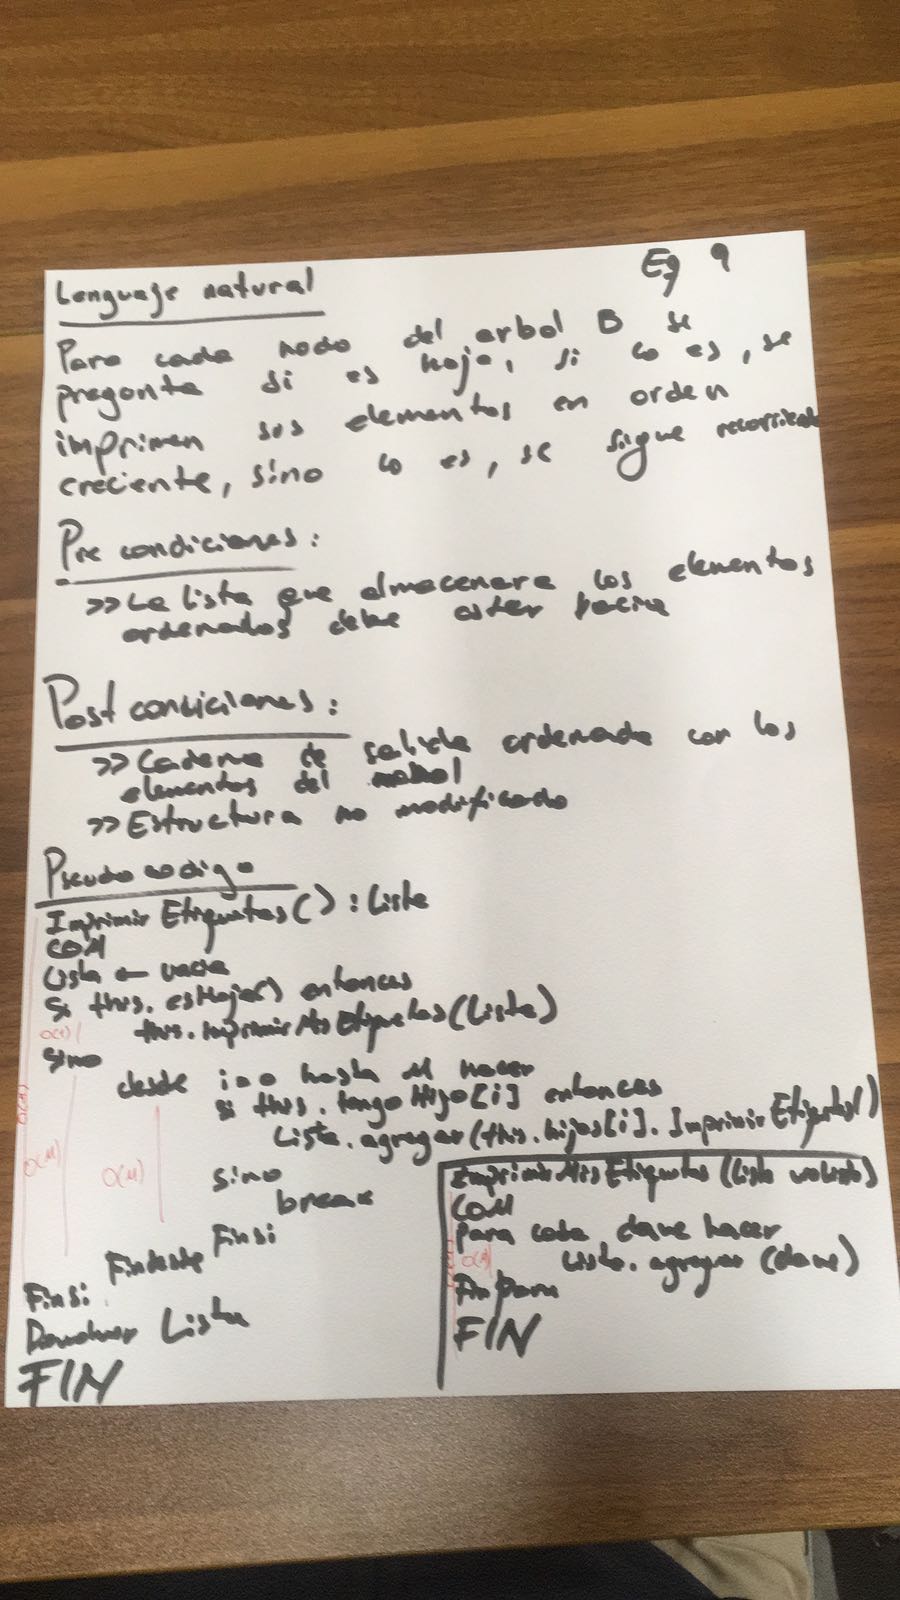 Lenguaje natural
Ej 9
Para cada nodo del arbol B se
pregunta si es hoja, si lo es, se
imprimen sus elementos en orden
creciente, sino lo es, se sigue recorriendo
Pre condiciones:
>> La lista que almacenara los elementos
ordenados debe estar vacia
Post condiciones:
>> Cadena de salida ordenada con los
elementos del
>> Estructura no modificado
Pseudo codigo
Imprimir Etiquetas() : Lista
COM
Lista ← vacia
Si this.esHoja() entonces
this.ImprimirMisEtiquetas(Lista)
O(1)
sino
desde i=0 hasta M hacer
si this.tengoHijo[i] entonces
Lista.agregar(this.hijos[i].ImprimirEtiquetas()
sino
break
Finsi
Findesde
Finsi
Devolver Lista
FIN
O(M)
O(M)
ImprimirMisEtiquetas (Lista
COM
para cada clave hacer
Lista.agregar (clave)
Fin para
FIN